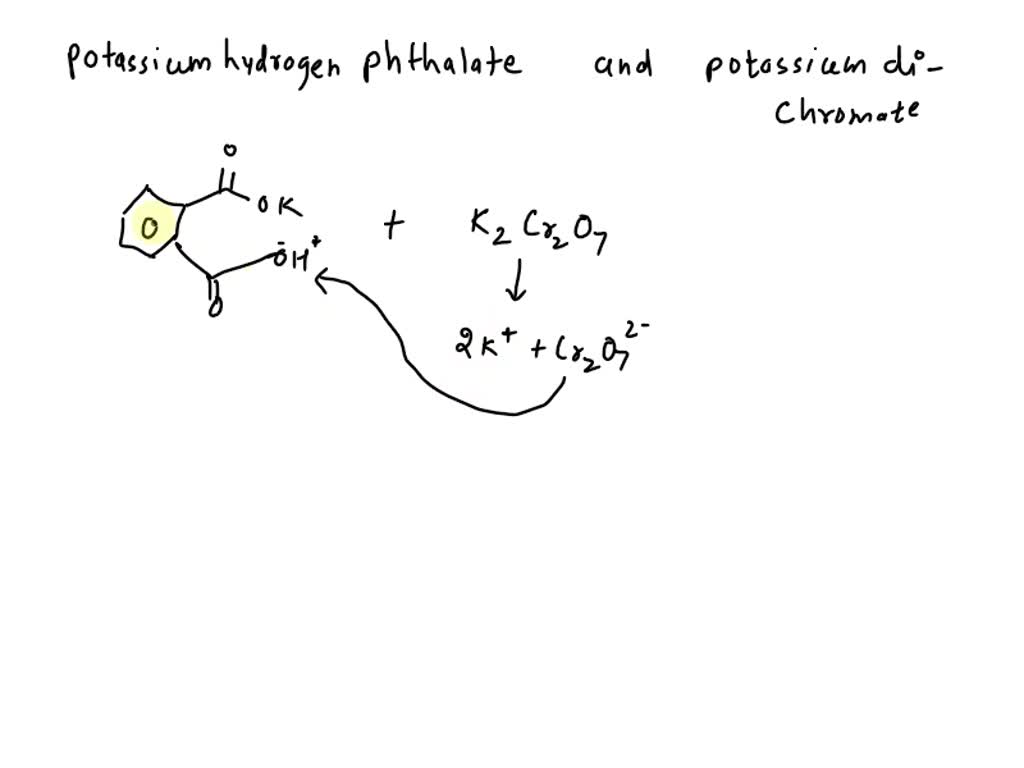 potassium hydrogen phthalate and potassium di-
chromate
O
OK
O
+ K2Cr2O7
ŌH+
O
↓
2K+ + Cr2O7 2-